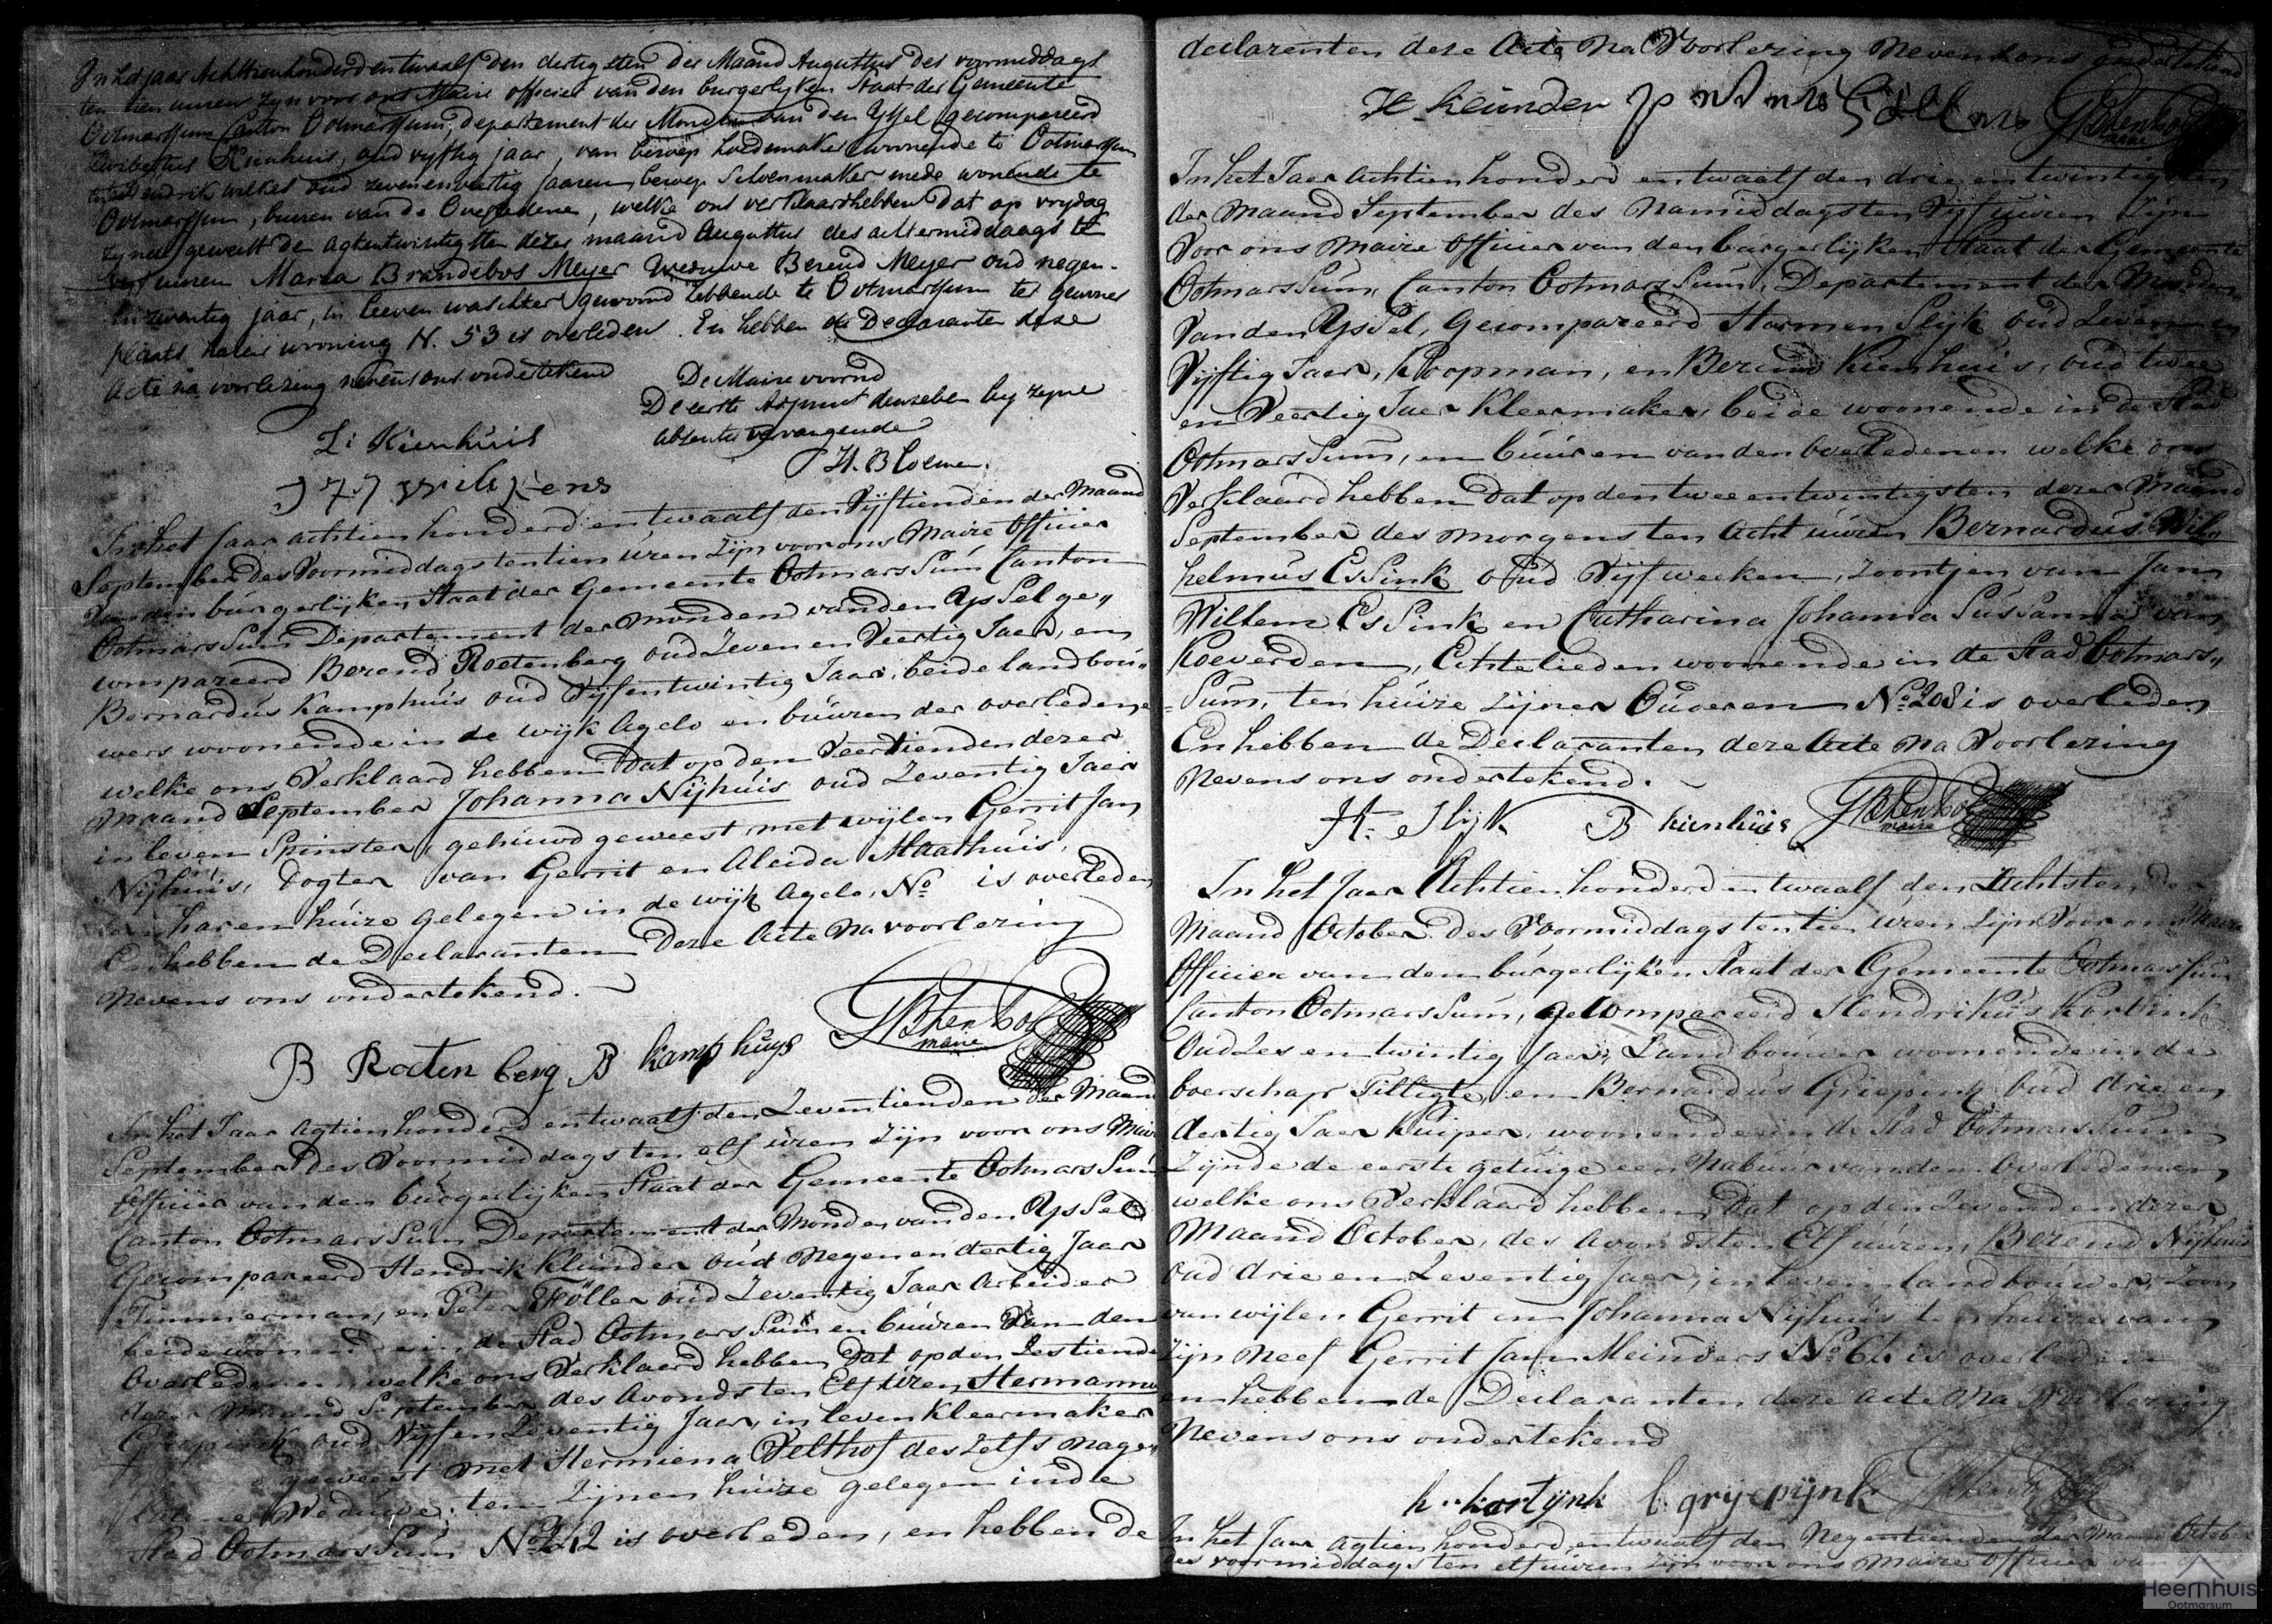 In het jaar Achttienhonderd en twaalf den dertigsten der Maand Augustus des voormiddags
ten tien uuren zyn voor ons Maire officier van den burgerlyken Staat der Gemeente
Ootmarssum Canton Ootmarssum, departement der Monden van den Yssel gecompareerd
Kienhuis, oud vyftig jaar, van beroep hoedemaker woonende te Ootmarssum
Hendrik oud zevenenveertig jaaren beroep mede woonende te
Ootmarssum, buuren van de Overledene, welke ons verklaard hebben dat op vrydag
zynde geweest de agtentwintigsten dezer maand Augustus des achtermiddaags te
uuren Maria Brandebos Meyer Weduwe Berend Meyer oud negen-
jaar, in leeven gewoond hebbende te Ootmarssum ter
plaats haare wooning N. 53 is overleden. En hebben de Declaranten deze
acte na voorlezing nevens ons ondertekend
De Maire voornd
De eerste Adjunct denzelven by zyne
absentie vervangende
Z: Kienhuis
H. Bloemen.
In het jaar achtien honderd en twaalf den Vijftienden der Maand
September des Voormiddags ten tien uren zijn voor ons Maire Officier
van den burgerlijken Staat der Gemeente Ootmarssum Canton
Ootmarssum Departement der Monden van den Yssel ge„
compareerd Berend Roetenberg oud Zeven en Veertig Jaer, en
Bernardus Kamphuis oud Vijfentwintig Jaar, beide landbou„
wers woonende in de wijk Agelo en buuren der overledene
welke ons Verklaard hebben dat op den Veertienden dezer
maand September Johanna Nijhuis oud Zeventig Jaer
in leven Spinster, gehuwd geweest met wijlen Gerrit Jan
Nijhuis, Dogter van Gerrit en Aleida Maathuis,
ten haren huize gelegen in de wijk Agelo, No is overleden
En hebben de Declaranten Deze Acte Na voorlezing
Nevens ons ondertekend.
B Roetenberg B kamphuys
maire
In het Jaar Agtien honderd en twaalf den Zeventienden der Maand
September des Voormiddags ten elf uren zijn voor ons Maire
Officier van den burgerlijken Staat der Gemeente Ootmarssum
Canton Ootmarssum Departement der Monden van den Yssel
Gecompareerd Hendrik Klunder oud Negen en dertig Jaar
Timmerman, en Peter Föller oud Zeventig Jaar Arbeider
beide wonende in de Stad Ootmarssum en buuren Van den
Overledenen, welke ons Verklaerd hebben dat op den Zestienden
dezer Maand September des Avonds ten Elf uren, Hermannus
Griepinck oud Vijf en Zeventig Jaar, in leven Kleermaker
geweest met Hermiena Velthof des zelfs Nage„
latene Weduwe, ten zijnen huize gelegen in de
Stad Ootmarssum No 212 is overleden, en hebben de
declarenten deze Acte Na Voorlezing Nevens ons ondertekend
H. Klunder
maire
In het Jaer Achtien honderd en twaalf den drie en twintigsten
der Maand September des Namiddags ten Vijf uuren zijn
Voor ons Maire Officier van den burgerlijken Staat der Gemeente
Ootmarssum, Canton Ootmarssum, Departement der Monden
Van den Yssel, Gecompareerd Harmen Slijk oud Zeven en
Vijftig Jaer, Koopman, en Berend Kienhuis, oud twee
en Veertig Jaer Kleermaker, beide woonende in de Stad
Ootmarssum, en buuren van den overledenen welke ons
Verklaard hebben dat op den twee en twintigsten dezer Maand
September des morgens ten Acht uuren Bernardus Wil„
helmus Essink oud Vijf weeken, Zoontjen van Jan
Willem Essink en Catharina Johanna Sussanna van
Koeverden, Echtelieden woonende in de Stad Ootmars„
Sum, ten huize zijner Ouderen No 208 is overleden
En hebben de Declaranten deze Acte Na Voorlezing
Nevens ons ondertekend.
H. Slijk B kienhuis
maire
In het Jaer Achtien honderd en twaalf den Achtsten der
Maand October des Voormiddags ten tien uren zijn Voor ons Maire
Officier van den burgerlijken Staat der Gemeente Ootmarssum
Canton Ootmarssum, gecompareerd Hendrikus Kortink
Oud Zes en twintig Jaer, Landbouwer woonende in de
boerschap Tilligte, en Bernardus Griepink oud drie en
dertig Jaer Kuiper, woonende in de Stad Ootmarssum
Zijnde de eerste getuige een Nabuur van den Overledenen
welke ons Verklaard hebben, dat op den Zevenden dezer
Maand October, des Avonds ten Elf uuren, Berend Nijhuis
oud drie en Zeventig Jaer, in leven landbouwer, Zoon
van wijlen Gerrit en Johanna Nijhuis ten huize van
Zijn Neef Gerrit Jan Meinders No 66 is overleden
en hebben de Declaranten deze Acte Na Voorlezing
Nevens ons ondertekend
h. kortijnk b grijepijnk
In het Jaar Agtien honderd en twaalf den Negentienden der Maand October
des voormiddags ten elf uuren zijn voor ons Maire Officier van
Heemhuis
Ootmarsum